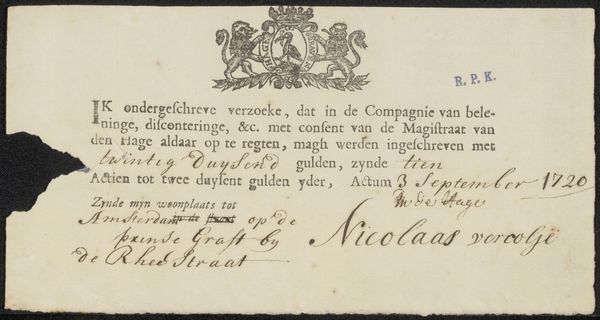 R. P. K.
IK ondergeschreve verzoeke, dat in de Compagnie van bele-
ninge, disconteringe, &c. met consent van de Magistraat van
den Hage aldaar op te regten, magh werden ingeschreven met
twintig Duysend gulden, zynde tien
Actien tot twee duysent gulden yder, Actum 3 September 1720
Zynde myn woonplaats tot
In de Hage
Amsterdam op de
prinse Graft by
Nicolaas vercolje
de Rhee Straat